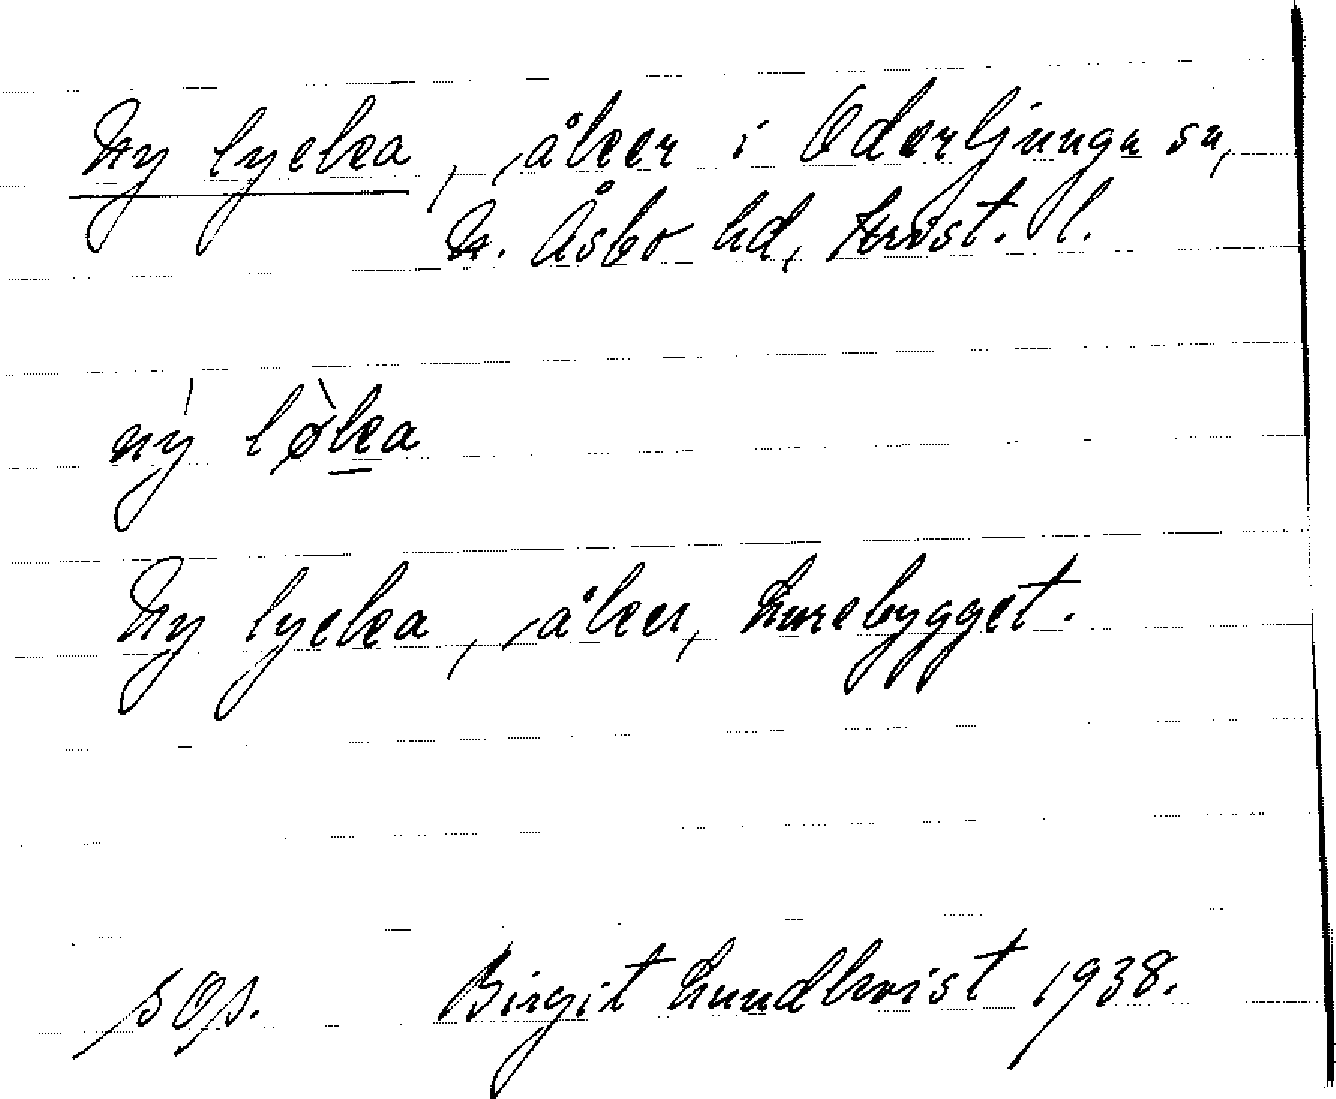 Ny lycka, åker i Oderljunga sn,
N. Åsbo hd, Krist. l.
ný lø̀ka
Ny lycka, åker, Lurebygget.
sop. Birgit Lundkvist 1938.